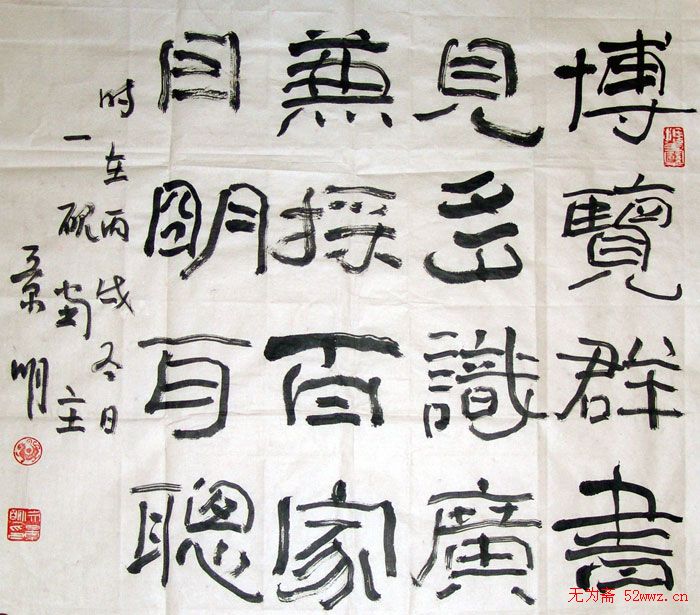 博覽群書
見多識廣
兼採百家
目明耳聰
時在丙戌冬日
一硯
主
景明
无为斋 52wwz.cn